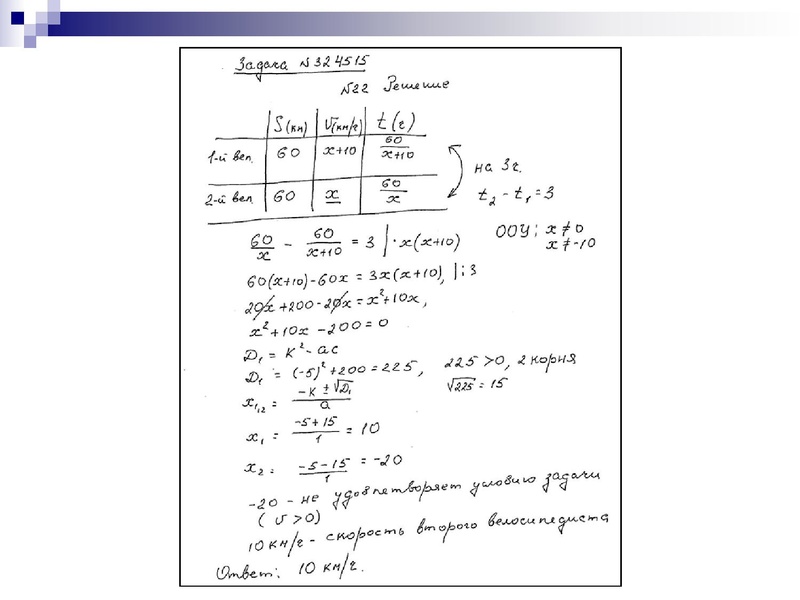 Задача №324515
№22 Решение
S(км) V(км/ч) t(ч)
1-й вел. 60 x+10 60/(x+10)
2-й вел. 60 x 60/x
на 3ч.
t₂ - t₁ = 3
60/x - 60/(x+10) = 3 | · x(x+10) ООУ: x ≠ 0
x ≠ -10
60(x+10)-60x = 3x(x+10), | : 3
20x+200-20x = x²+10x,
x²+10x-200=0
D₁ = k²-ac
D₁ = (-5)²+200=225, 225 >0, 2 корня
x₁,₂ = (-k ± √D₁)/a √225 = 15
x₁ = (-5+15)/1 = 10
x₂ = (-5-15)/1 = -20
-20 - не удовлетворяет условию задачи
(v >0)
10 км/ч - скорость второго велосипедиста
Ответ: 10 км/ч.